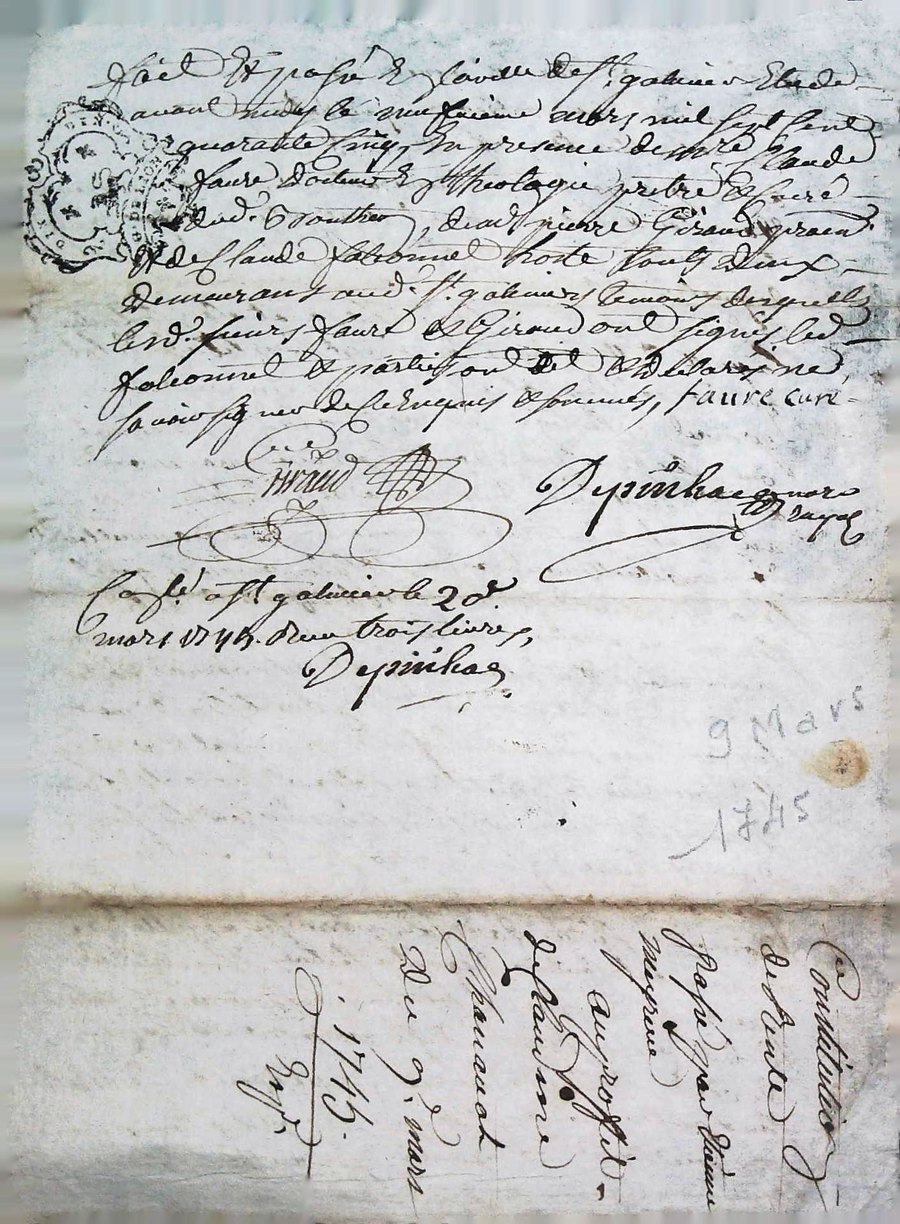 fait Et passé En la ville de St. galmier Etude
avant midy le neufvieme mars mil sept cent
quarante Cinq, En presence de mre Claude
faure Docteur En Theologie pretre & Curé
dud. , de Sr pierre Giraud
Et de Claude falconnel hoste touts deux
demeurans aud. St. galmier temoins desquels
lesd. sieurs faure & Giraud ont signés, led.
falconnel & parties ont dit & declarés ne
savoir signer de ce Enquis & sommés, faure curé
Giraud
Depinhac nore
Royal
Conlé. a St. galmier le 20e
mars 1745. Reçu trois livres,
Depinhac
9 Mars
1745
Constitution
de Rente
passé par Etienne
au profit
de Claudine
Chamanat
Du 9e. mars
1745.
Exp.